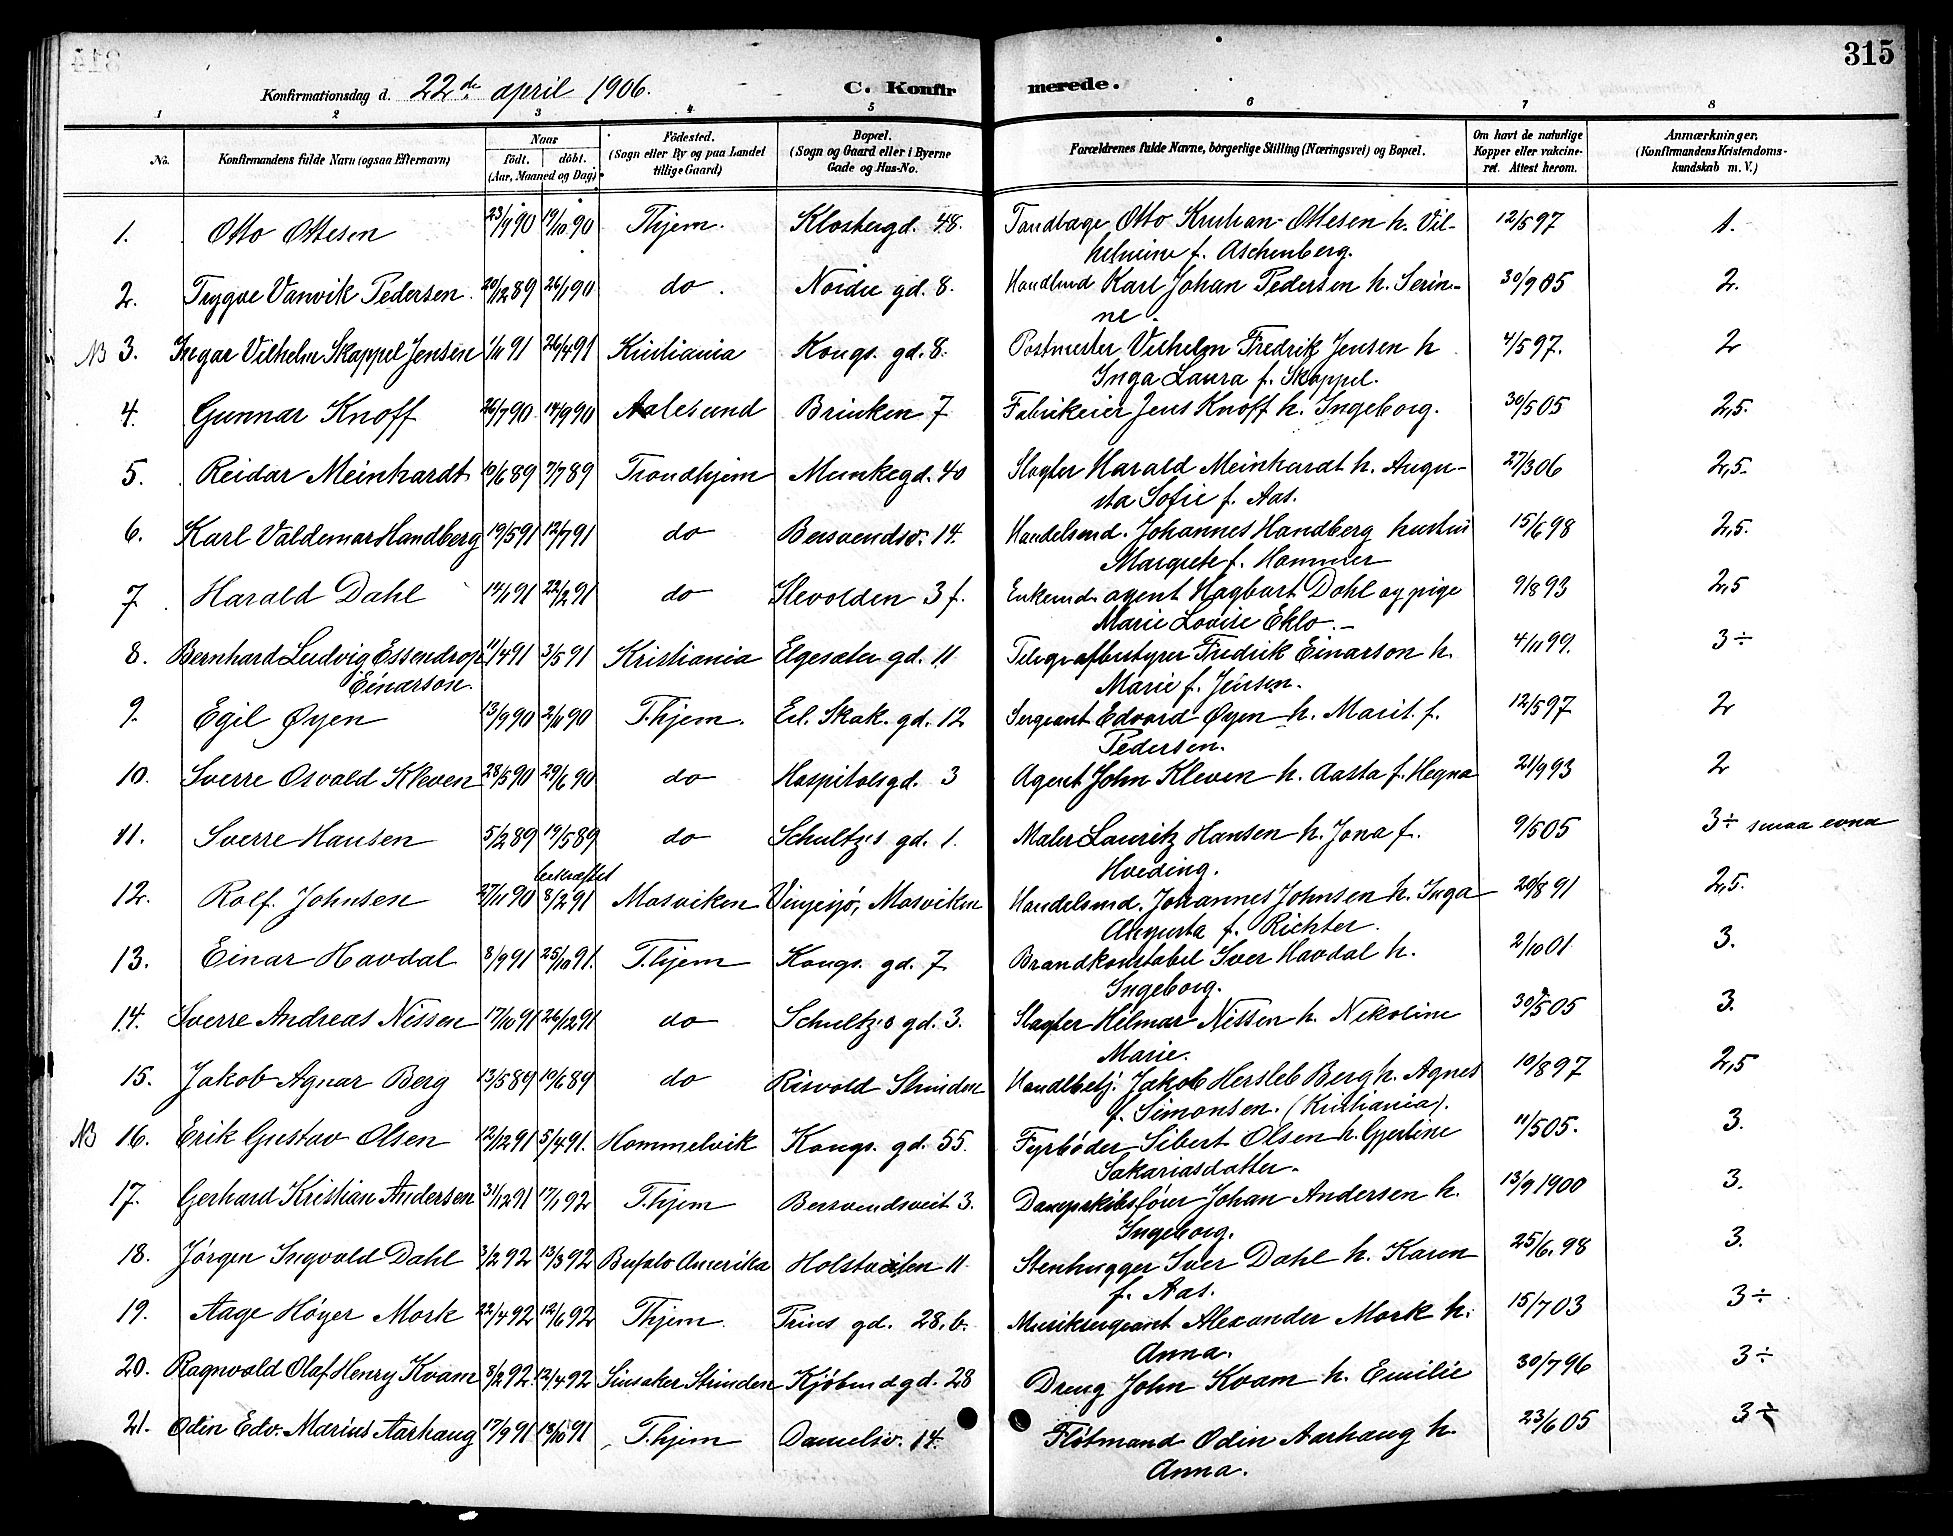 315
Konfirmationsdag d. 22de april 1906. C. Konfirmerede.
1 2 3 4 5 6 7 8
No. Konfirmandens fulde Navn (ogsaa Efternavn) Naar født. døbt. (Aar, Maaned og Dag) Fødested. (Sogn eller By og paa Landet tillige Gaard) Bopæl. (Sogn og Gaard eller i Byerne Gade og Hus-No. Forældrenes fulde Navne, borgerlige Stilling (Næringsvei) og Bopæl. Om havt de naturlige Kopper eller vakcineret. Attest herom. Anmærkninger. (Konfirmandens Kristendomskundskab m. V.)
1. Otto Ottesen 23/9 90 19/10 90 Thjem. Klostergd. 48. Tandlæge Otto Kristian Ottesen h. Vil- 12/5 97 1.
helmine f. Aschenberg.
2. Trygve Vanvik Pedersen 20/12 89 26/1 90 do. Nordre gd. 8. Handlsmd Karl Johan Pedersen h. Serin- 30/9 05 2.
ne.
NB 3. Ingar Vilhelm Skappel Jensen 1/11 91 26/4 91 Kristiania Kongs. gd. 8. Postmester Vilhelm Fredrik Jensen h 4/5 97. 2
Inga Laura f. Skappel.
4. Gunnar Knoff 26/7 90 14/9 90 Aalesund Brinken 7 Fabrikeier Jens Knoff h. Ingeborg. 30/5 05 2,5.
5. Reidar Meinhardt 10/6 89 7/7 89 Trondhjem Munkegd. 40 Slagter Harald Meinhardt h. Augu- 27/3 06 2,5.
sta Sofie f. Aas.
6. Karl Valdemar Handberg 19/5 91 12/7 91 do Bersvendsv. 14. Handelsmd. Johannes Handberg hustru 15/6 98 2,5.
Margrete f. Hammer
7. Harald Dahl 14/1 91 22/2 91 do Ilevolden 3 f. Enkemd. agent Hagbart Dahl og pige 9/8 93 2,5
Marie Lovise Eklo.-
8. Bernhard Ludvig Essendrop 11/4 91 3/5 91 Kristiania Elgesæter gd. 11 Telegrafbestyrer Fredrik Einarson h. 4/11 99. 3÷
Einarson. Marie f. Jensen.
9. Egil Øyen 13/9 90 2/11 90 T.hjem. Erl. Skak. gd. 12 Sergeant Edvard Øyen h. Marit f. 12/5 97 2
Pedersen.
10. Sverre Osvald Kleven 28/5 90 29/6 90 do Hospitalsgd. 3 Agent John Kleven h. Aasta f. Hegna 21/9 93 2
11. Sverre Hansen 5/2 89 19/5 89 do Schultz's gd. 1. Maler Lauritz Hansen h. Jona f. 9/5 05 3÷ smaa evna
Hveding.
bekræftet
12. Rolf Johnsen 27/11 90 8/2 91 Mosviken Vinjesjø, Mosviken Handelsmd. Johannes Johnsen h. Inga 20/8 91 2,5.
Augusta f. Richter.
13. Einar Havdal 8/9 91 25/10 91. T.hjem Kongs. gd. 7 Brandkonstabel Iver Havdal h. 2/10 01 3.
Ingeborg.
14. Sverre Andreas Nissen 17/10 91 26/12 91 do Schultz's gd. 3. Slagter Hilmar Nissen h. Nikoline 30/5 05 3.
Marie.
15. Jakob Agnar Berg 13/5 89 10/6 89 do Risvold Strinden Handlbetj. Jakob Hersleb Berg h. Agnes 10/8 97 2,5
f. Simonsen. (Kristiania).
NB 16. Erik Gustav Olsen 12/12 91 5/4 91. Hommelvik Kongs. gd. 55. Fyrbøder Sibert Olsen h. Gjertine 11/5 05. 3.
Sakariasdatter.
17. Gerhard Kristian Andersen 31/12 91 17/1 92 T.hjem Bersvendsveit 3. Dampskibsfører Johan Andersen h. 13/9 1900 3.
Ingeborg.
18. Jørgen Ingvald Dahl 3/2 92 13/3 92 Bufalo Amerika Holstveiten 11 Stenhugger Iver Dahl h. Karen 25/6. 98 3.
f. Aas.
19. Aage Høyer Mork 22/4 92 12/6 92 Thjem. Prins gd. 28. b. Musiksergeant Alexander Mork h. 15/7 03 3÷
Anna.
20. Ragnvald Olaf Henry Kvam 8/2 92. 12/4 92 Sinsaker Strinden Kjøbmdgd. 28 Dreng John Kvam h. Emilie 30/7 96 3÷
21. Odin Edv. Marius Aarhaug 17/9 91 18/10 91 T.hjem Danielsv. 14. Fløtmand Odin Aarhaug h. 23/6 05 3÷
Anna.